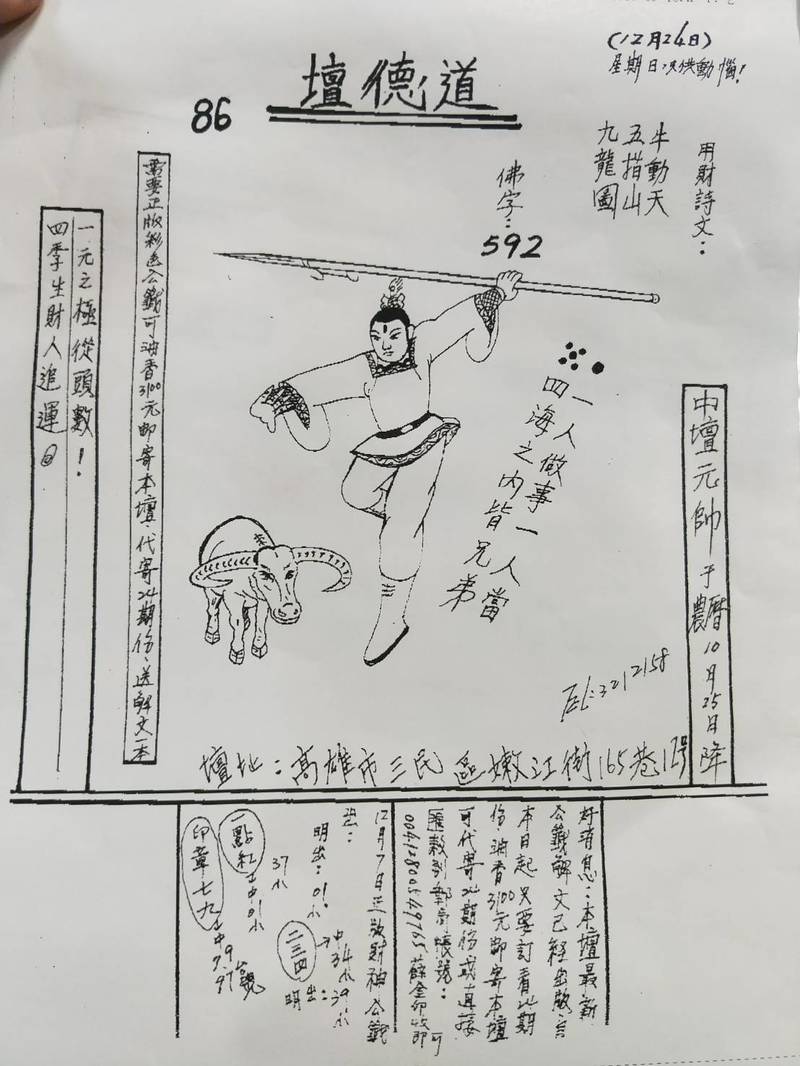 (12月24日)
星期日只供動惱!
道德壇
86
用財詩文:
牛動天
五指山
九龍圖
佛字:
592
一人做事一人當
四海之內皆兄弟
中壇元帥于農曆10月25日降
需要正版彩色公籤可油香3100元郵寄本壇.代寄24期份.送解文一本
一元之極從頭數!
四季生財人追運@
TEL:3212158
壇址:高雄市三民區嫩江街165巷12号
好消息:本壇最新
公籤解文已經出版.自
本日起只要訂看24期
份.油香3100元郵寄本壇
可代寄24期份或直接
匯款到郵局帳號:
收即可
12月7日正版財神公籤
明出:01.
二三四
中34
39
明出:
37
一點紅
中01
印章七九
中79.97
號